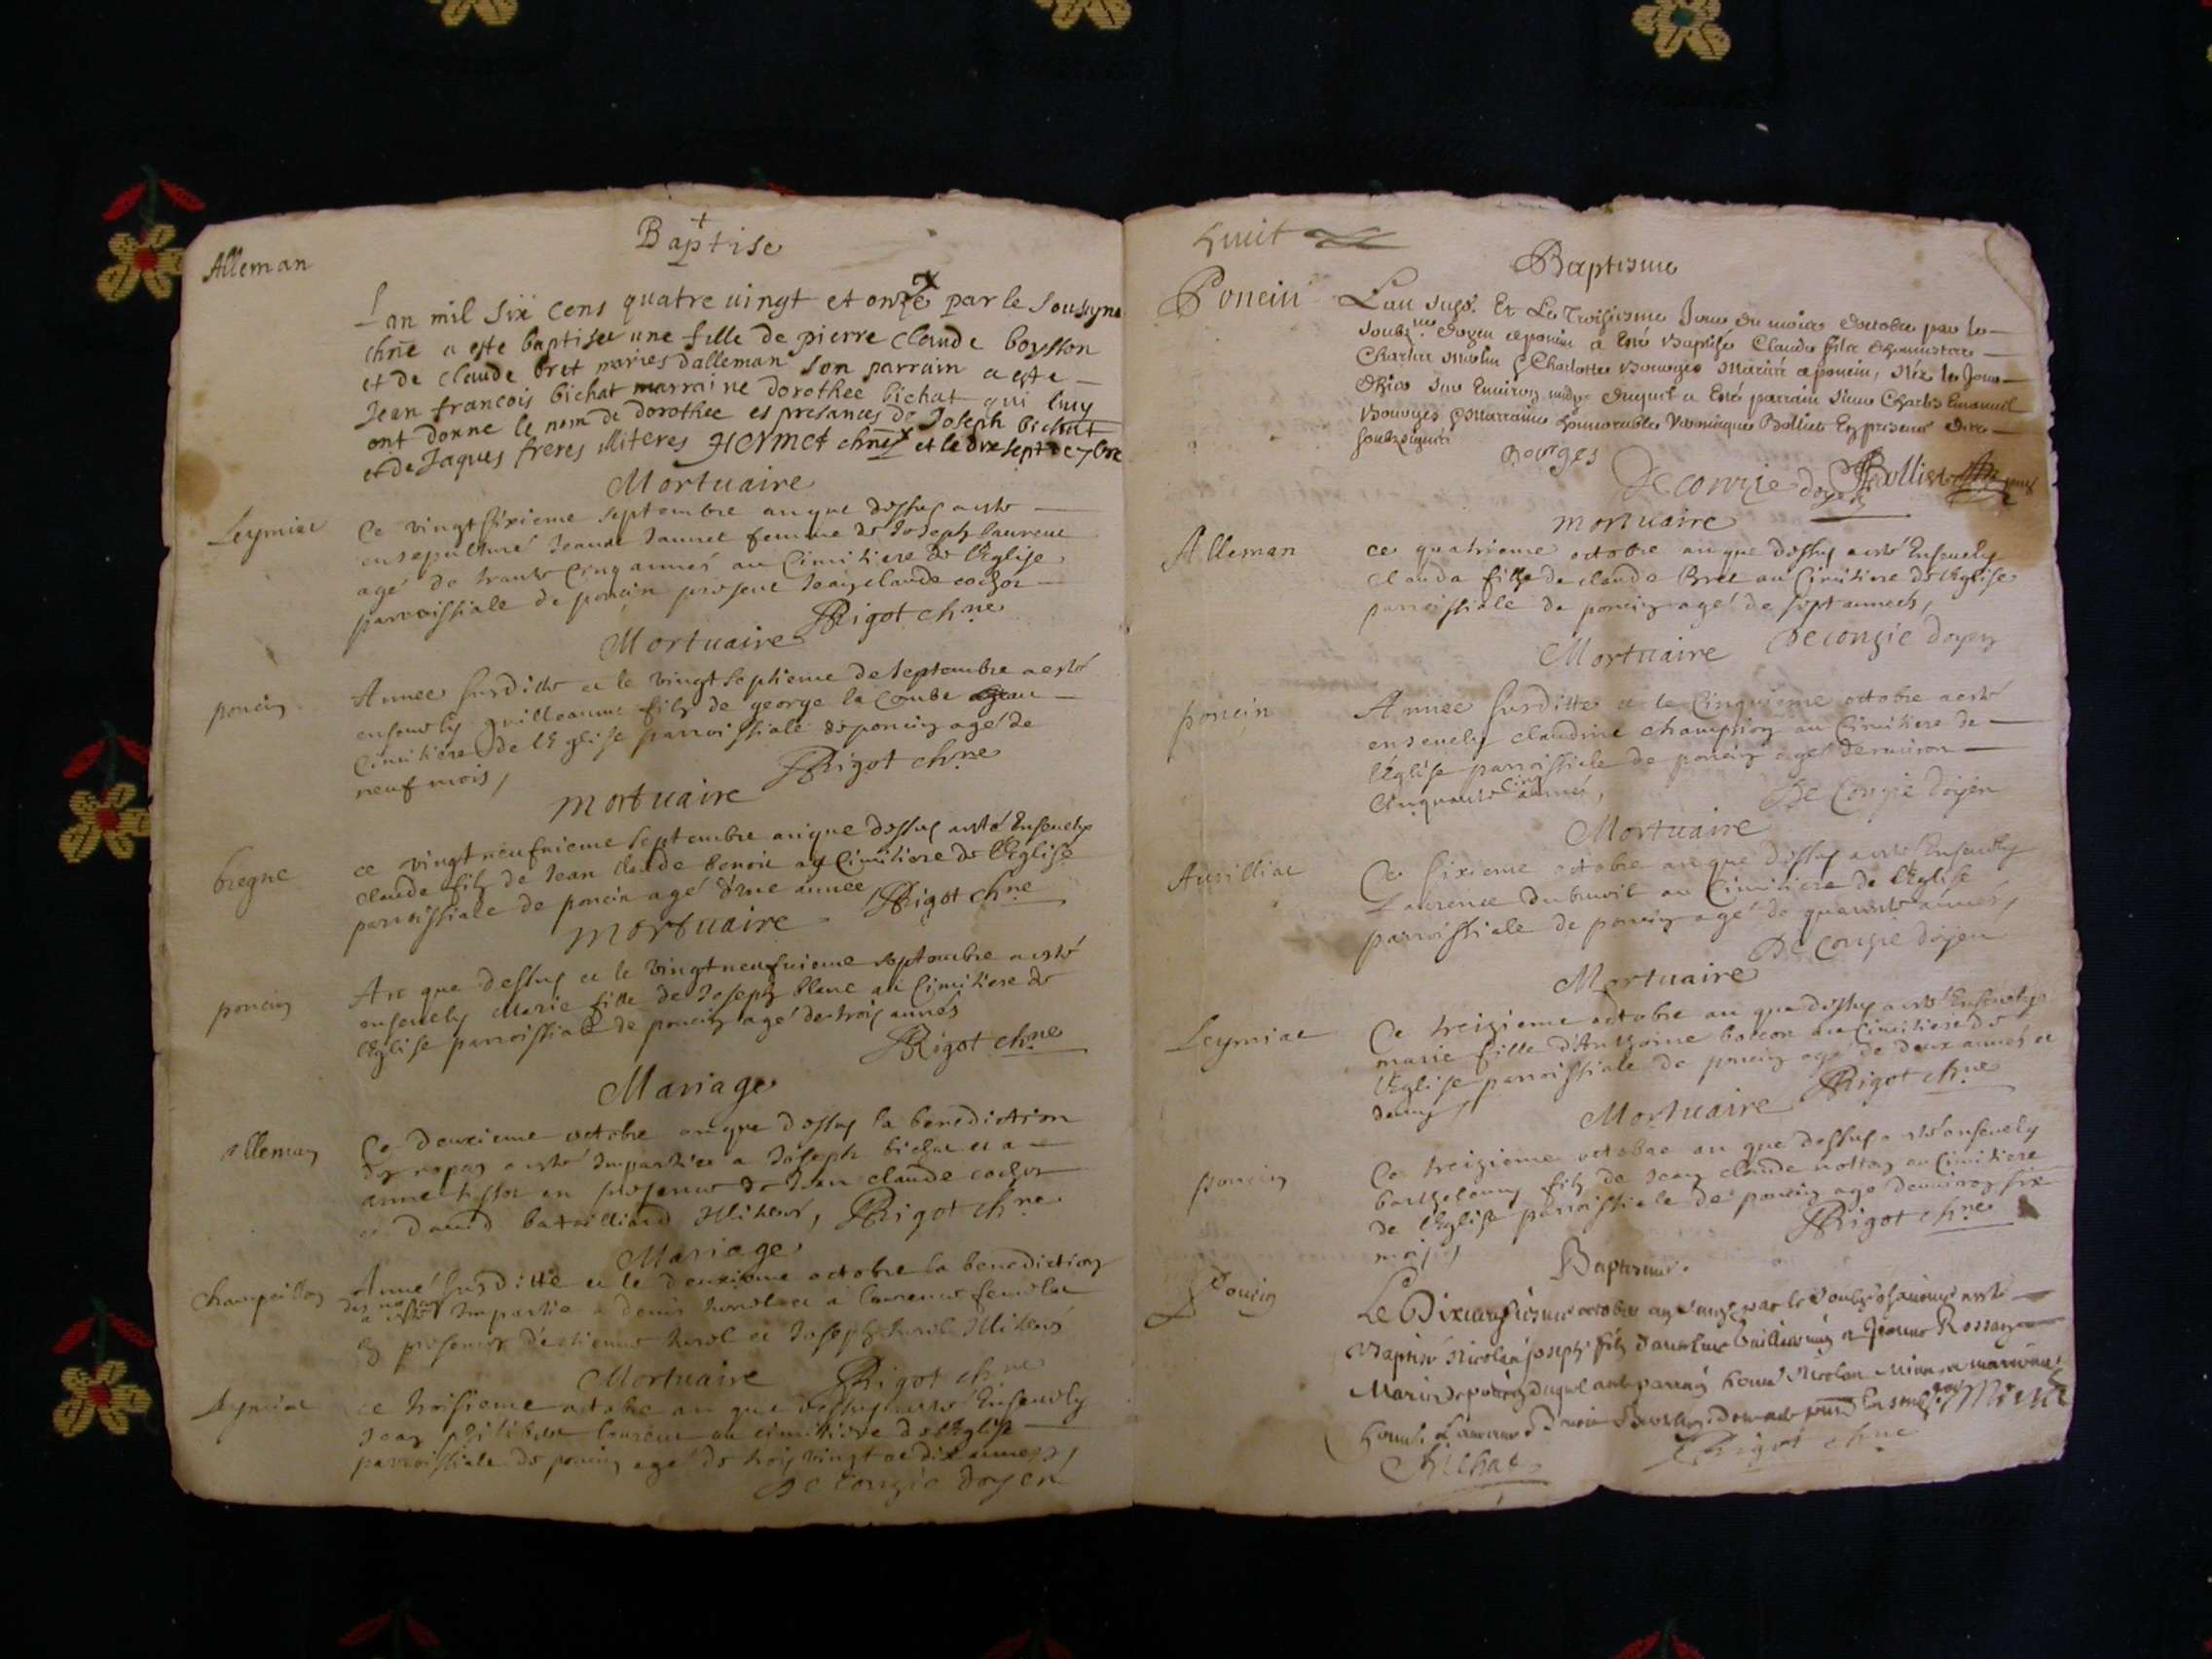 Baptise
Alleman
Lan mil six cens quatre uingt et onze par le sousigne
chne a este baptisee une fille de pierre claude boysson
et de claude bret maries dalleman son parrain a este
Jean francois bichat marraine dorothee bichat qui luy
ont donne le nom de dorothee es presances de Joseph bichat
et de Jaques freres illiteres Hermet chne et le dixsept de 7bre
Mortuaire
Leymiac
Ce vingtsixieme septembre an que dessus a esté
ensepulturé Jeanne Jannet femme de Joseph laurent
agé de trante cinq années au Cimitiere de l'Eglise
parroissiale de poncin présent Jean claude cochon
Rigot chne
Mortuaire
poncin
Annee susditte et le vingtseptieme de septembre a esté
ensevely guilleaume filz de george la combe au
Cimitiere de l'Eglise parroissiale de poncin agé de
neuf mois,
Rigot chne
mortuaire
bregne
ce vingtneufvieme septembre an que dessus a esté Ensevely
claude filz de Jean claude benoit au Cimitiere de l'Eglise
parroissiale de poncin agé d'une annee, Rigot chne
mortuaire
poncin
An que dessus et le vingtneufvieme septembre a esté
ensevely Marie fille de Joseph blanc au Cimitiere de
l'Eglise parroissiale de poncin agé de trois années
Rigot chne
Mariage
Alleman
Ce deuxieme octobre an que dessus la benediction
a esté Impartie a Joseph bichat et a
anne tissot en presence de Jean claude cochon
et david bataillard Illiteres, Rigot chne
Mariage
Champeillon
Anné susditte et le deuxieme octobre la benediction
a esté Impartie a denis et a laurence
en presences d'estienne et Joseph Illiteres
Rigot chne
Mortuaire
Leymiac
ce troisieme octobre an que dessus a esté Ensevely
Jean philibert laurent au cimitiere de l'Eglise
parroissiale de poncin agé de trois vingt et dix annees,
De Congie doyen
huit
Baptisme
Poncin
Lan susd. Et Le Troisiesme Jour du mois doctobre par le
soubz.né doyen a poncin a Esté Baptisé Claude filz
Charles & Charlotte Bourges Mariés a poncin, Néz le Jour
Dhier sur Environ midy duquel a Esté parrain sieur Charles Emanuel
Bourges & Marraine honnorable Veronique Bolliet En presence
soubzsignés
Bourges
De congie doyen
Bolliet
mortuaire
Alleman
ce quatrieme octobre an que dessus a esté Ensevely
clauda fille de claude Bret au Cimitiere de l'Eglise
parroissiale de poncin agé de sept années,
De congie doyen
Mortuaire
poncin
Annee susditte et le Cinquieme octobre a esté
ensevely claudine champion au Cimitiere de
l'Eglise parroissiale de poncin agé denviron
Cinquante cinq années,
De Congie doyen
Mortuaire
Avrilliac
Ce sixieme octobre an que dessus a esté Ensevely
Laurence dubrueil au Cimitiere de l'Eglise
parroissiale de poncin agé de quarante années,
De Congie doyen
Mortuaire
Leymiac
Ce treizieme octobre an que dessus a esté Ensevely
marie fille d'Anthoine au Cimitiere de
l'Eglise parroissiale de poncin agé de deux années et
demy,
Rigot chne
Mortuaire
poncin
Ce treizieme octobre an que dessus a esté ensevely
barthelemy filz de Jean claude notton au Cimitiere
de l'Eglise parroissiale de poncin agé denviron six
mois,
Rigot chne
Baptisme
Poncin
Le octobre par le a esté
Baptisé Nicolas Joseph filz et Jeanne Rossan
Mariés de poncin duquel a esté parrain
Bichat
Rigot chne